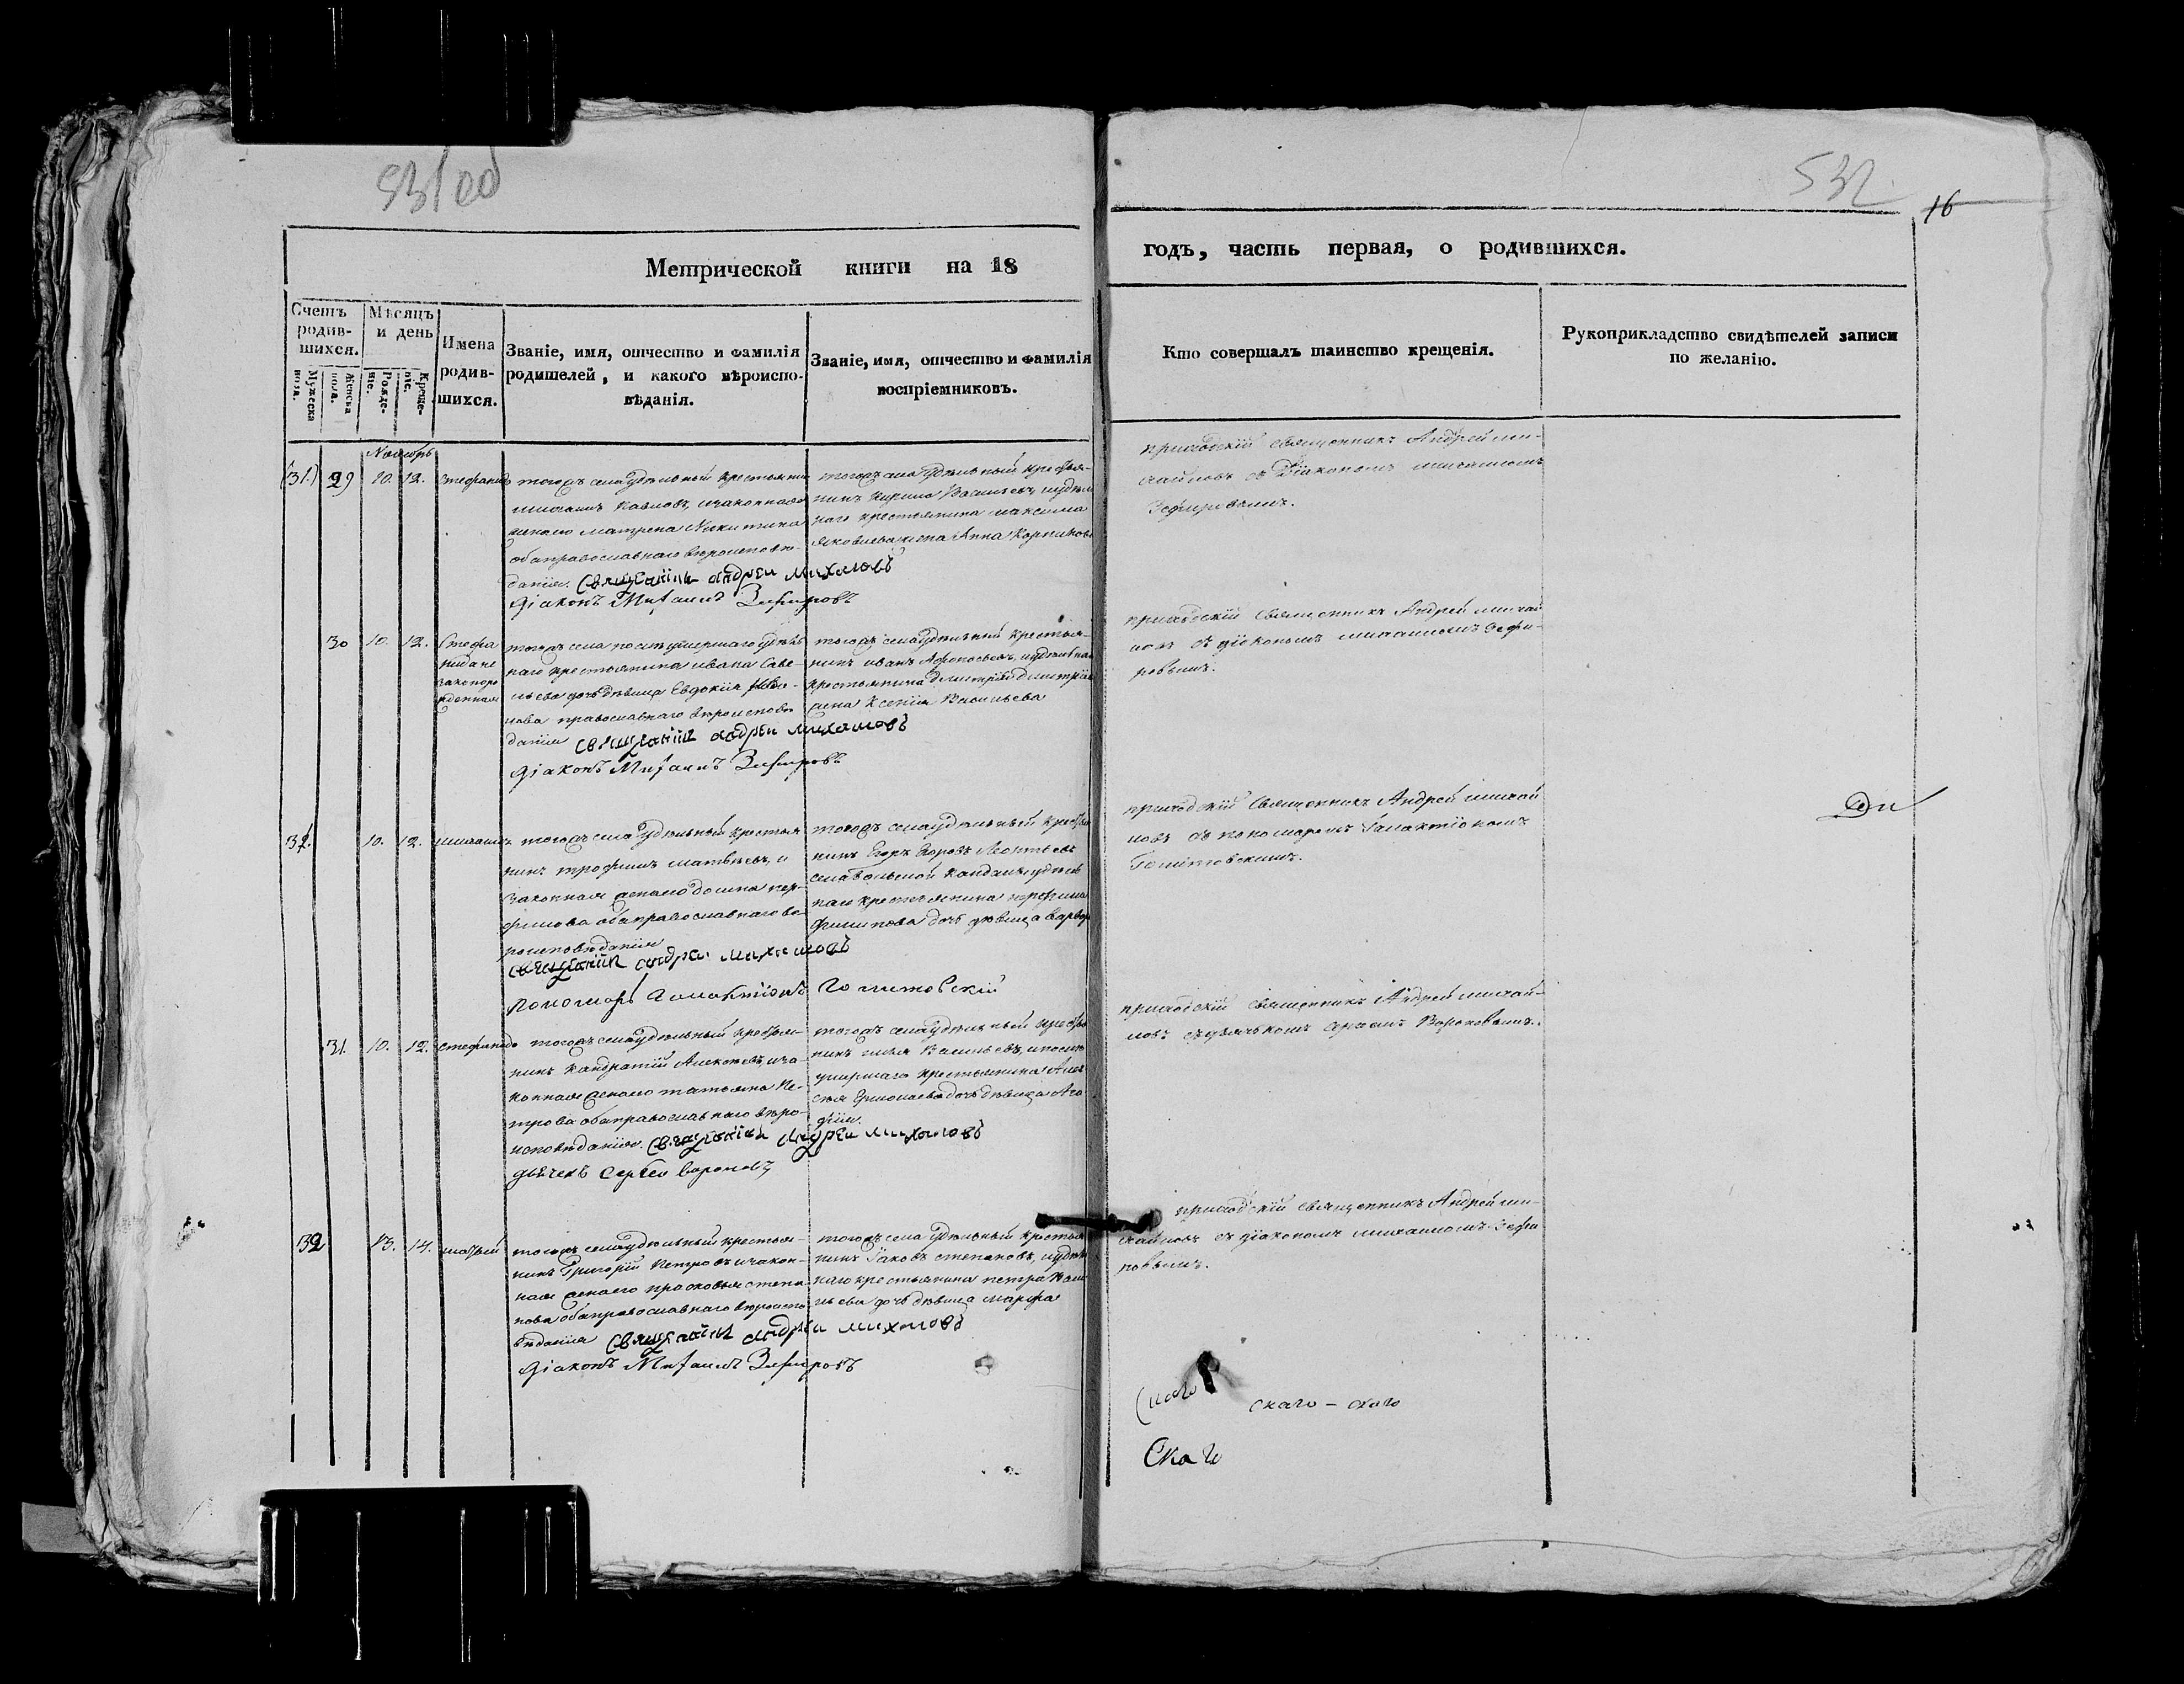 531 об
532
16
Метрической книги на 18
годъ, часть первая, о родившихся.
Счетъ родив-шихся.
Мужеска пола.
Женска пола.
Мѣсяцъ и день
Рожде-нія.
Креще-нія.
Имена родив-шихся.
Званіе, имя, отчество и фамилія
родителей, и какого вѣроиспо-
вѣданія.
Званіе, имя, отчество и фамилія
воспріемниковъ.
Кто совершалъ таинство крещенія.
Рукоприкладство свидѣтелей записи
по желанію.
Ноябрь
(31.) 29 10. 12. Стефанида
тогожъ села удѣльный крестьянинъ
Павловъ, и законная
жена его матрена Никитина
оба православнаго вѣроисповѣ-
данія. Священникъ андреи михаиловъ
Діаконъ Михаилъ Зефировъ
тогожъ села удѣльный крестья-
нинъ Кирило Васильевъ, и удѣль
наго крестьянина максима
яковлева жена Анна
приходскій Священникъ Андрей ми-
хайловъ съ Діакономъ михаиломъ
Зефировымъ.
30 10. 12. Стефа
нида не
законоро
жденная
тогожъ села послѣ умершаго удѣль
наго крестьянина ивана Саве-
льева дочь дѣвица Евдокія
православнаго вѣроисповѣ
данія Священникъ андреи михаиловъ
Діаконъ Михаилъ Зефировъ
тогожъ села удѣльный крестья-
нинъ иванъ и удѣльнаго
крестьянина димитрія димитріева
жена Ксенія Васильева
приходскій Священникъ Андрей михай
ловъ съ діакономъ михаиломъ Зефи-
ровымъ.
32. 10. 12. михаилъ
тогожъ села удѣльный крестья
нинъ трофимъ матвѣевъ, и
законная жена его домна
оба православнаго вѣ
роисповѣданія
Священникъ андреи михаиловъ
Пономарь Галактіонъ
тогожъ села удѣльный крестья
нинъ Егоръ Леонтьевъ
села удѣль
наго крестьянина
филипова дочь дѣвица варвара
приходскій Священникъ Андрей михай
ловъ съ пономаремъ Галактіономъ
Ди
31. 10. 12. Стефанида
тогожъ села удѣльный крестья-
нинъ Кандратій Алексѣевъ, и за-
конная жена его татьяна Пе-
трова оба православнаго вѣро-
исповѣданія. Священникъ Андреи михаиловъ
дьячекъ Сергѣй Вороновъ
тогожъ села удѣльный крестья
нинъ илья Васильевъ, и послѣ
умершаго крестьянина Алек
сѣя Ермолаева дочь дѣвица Ага
фія.
приходскій Священникъ Андрей михай-
ловъ съ дьячкомъ Сергѣемъ Вороновымъ.
32 13. 14. матвей
тогожъ села удѣльный крестья-
нинъ Григорій Петровъ и закон-
ная жена его прасковья степа
нова оба православнаго вѣроиспо
вѣданія Священникъ андреи михаиловъ
Діаконъ Михаилъ Зефировъ
тогожъ села удѣльный крестья
нинъ Іаковъ степановъ, и удѣль
наго крестьянина петра Васи
льева дочь дѣвица марфа
приходскій Священникъ Андрей ми-
хайловъ съ діакономъ михаиломъ Зефи
ровымъ.
скаго – скаго
Скаго